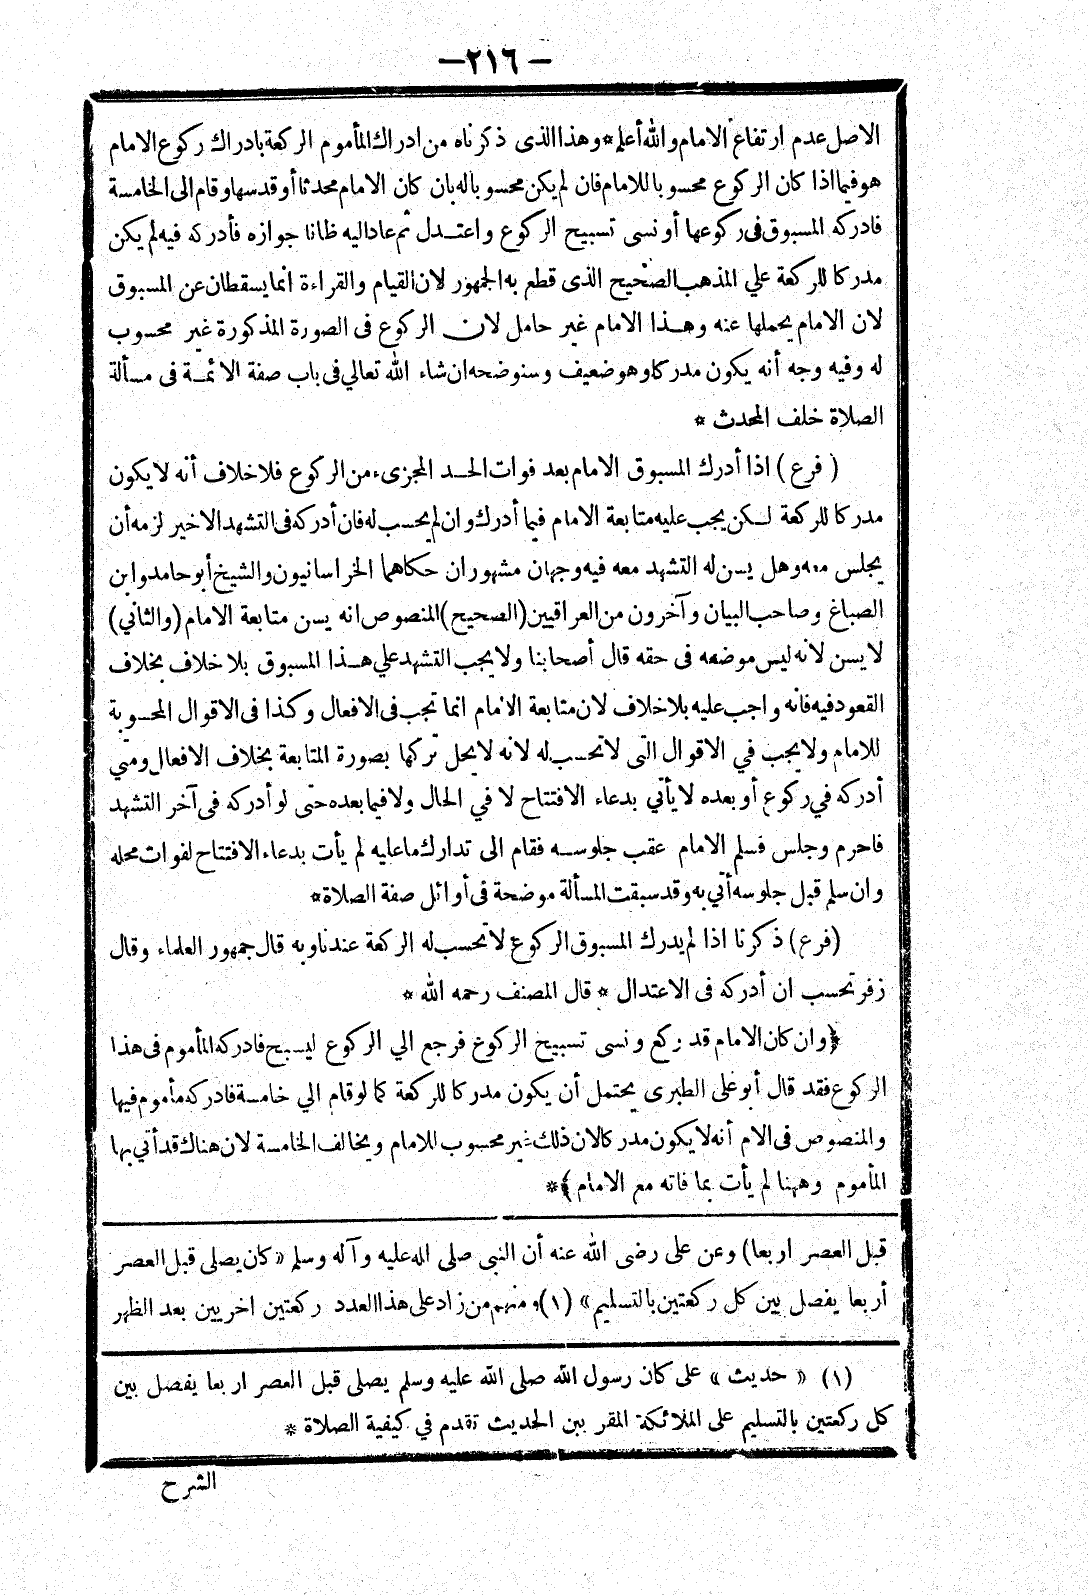 —٢١٦—
الاصل عدم ارتفاع الامام والله أعلم * وهذا الذى ذكرناه من ادراك المأموم الركعة بادراك ركوع الامام
هو فيما اذا كان الركوع محسوبا للامام فان لم يكن محسوبا له بان كان الامام محدثا أو قد سها وقام الى الخامسة
فادركه المسبوق فى ركوعها أو نسى تسبيح الركوع واعتدل ثم عاد اليه ظانا جوازه فأدركه فيه لم يكن
مدركا للركعة علي المذهب الصحيح الذى قطع به الجمهور لان القيام والقراءة انما يسقطان عن المسبوق
لان الامام يحملها عنه وهذا الامام غير حامل لان الركوع فى الصورة المذكورة غير محسوب
له وفيه وجه أنه يكون مدركا وهو ضعيف وسنوضحه ان شاء الله تعالي فى باب صفة الائمة فى مسألة
الصلاة خلف المحدث *
( فرع ) اذا أدرك المسبوق الامام بعد فوات الحد المجزىء من الركوع فلا خلاف أنه لا يكون
مدركا للركعة لكن يجب عليه متابعة الامام فيما أدرك وان لم يحسب له فان أدركه فى التشهد الاخير لزمه أن
يجلس معه وهل يسن له التشهد معه فيه وجهان مشهوران حكاهما الخراسانيون والشيخ أبو حامد وابن
الصباغ وصاحب البيان وآخرون من العراقيين (الصحيح) المنصوص انه يسن متابعة الامام (والثاني)
لا يسن لانه ليس موضعه فى حقه قال أصحابنا ولا يجب التشهد علي هذا المسبوق بلا خلاف بخلاف
القعود فيه فانه واجب عليه بلا خلاف لان متابعة الامام انما تجب فى الافعال وكذا فى الاقوال المحسوبة
للامام ولا يجب في الاقوال التى لا تحسب له لانه لا يحل تركها بصورة المتابعة بخلاف الافعال ومتي
أدركه في ركوع أو بعده لا يأتي بدعاء الافتتاح لا في الحال ولا فيما بعده حتى لو أدركه فى آخر التشهد
فاحرم وجلس فسلم الامام عقب جلوسه فقام الى تدارك ما عليه لم يأت بدعاء الافتتاح لفوات محله
وان سلم قبل جلوسه أتي به وقد سبقت المسألة موضحة فى أوائل صفة الصلاة *
(فرع) ذكرنا اذا لم يدرك المسبوق الركوع لا تحسب له الركعة عندنا وبه قال جمهور العلماء وقال
زفر تحسب ان أدركه فى الاعتدال * قال المصنف رحمه الله *
﴿وان كان الامام قد ركع ونسى تسبيح الركوع فرجع الي الركوع ليسبح فادركه المأموم فى هذا
الركوع فقد قال أبو على الطبرى يحتمل أن يكون مدركا للركعة كما لو قام الي خامسة فادركه مأموم فيها
والمنصوص فى الام أنه لا يكون مدركا لان ذلك غير محسوب للامام ويخالف الخامسة لان هناك قد أتي بها
المأموم وههنا لم يأت بما فاته مع الامام ﴾*
قبل العصر اربعا) وعن على رضى الله عنه أن النبى صلى الله عليه وآله وسلم « كان يصلى قبل العصر
أربعا يفصل بين كل ركعتين بالتسليم » (١) ومنهم من زاد على هذا العدد ركعتين اخريين بعد الظهر
(١) « حديث » على كان رسول الله صلى الله عليه وسلم يصلى قبل العصر اربعا يفصل بين
كل ركعتين بالتسليم على الملائكة المقربين الحديث تقدم في كيفية الصلاة *
الشرح